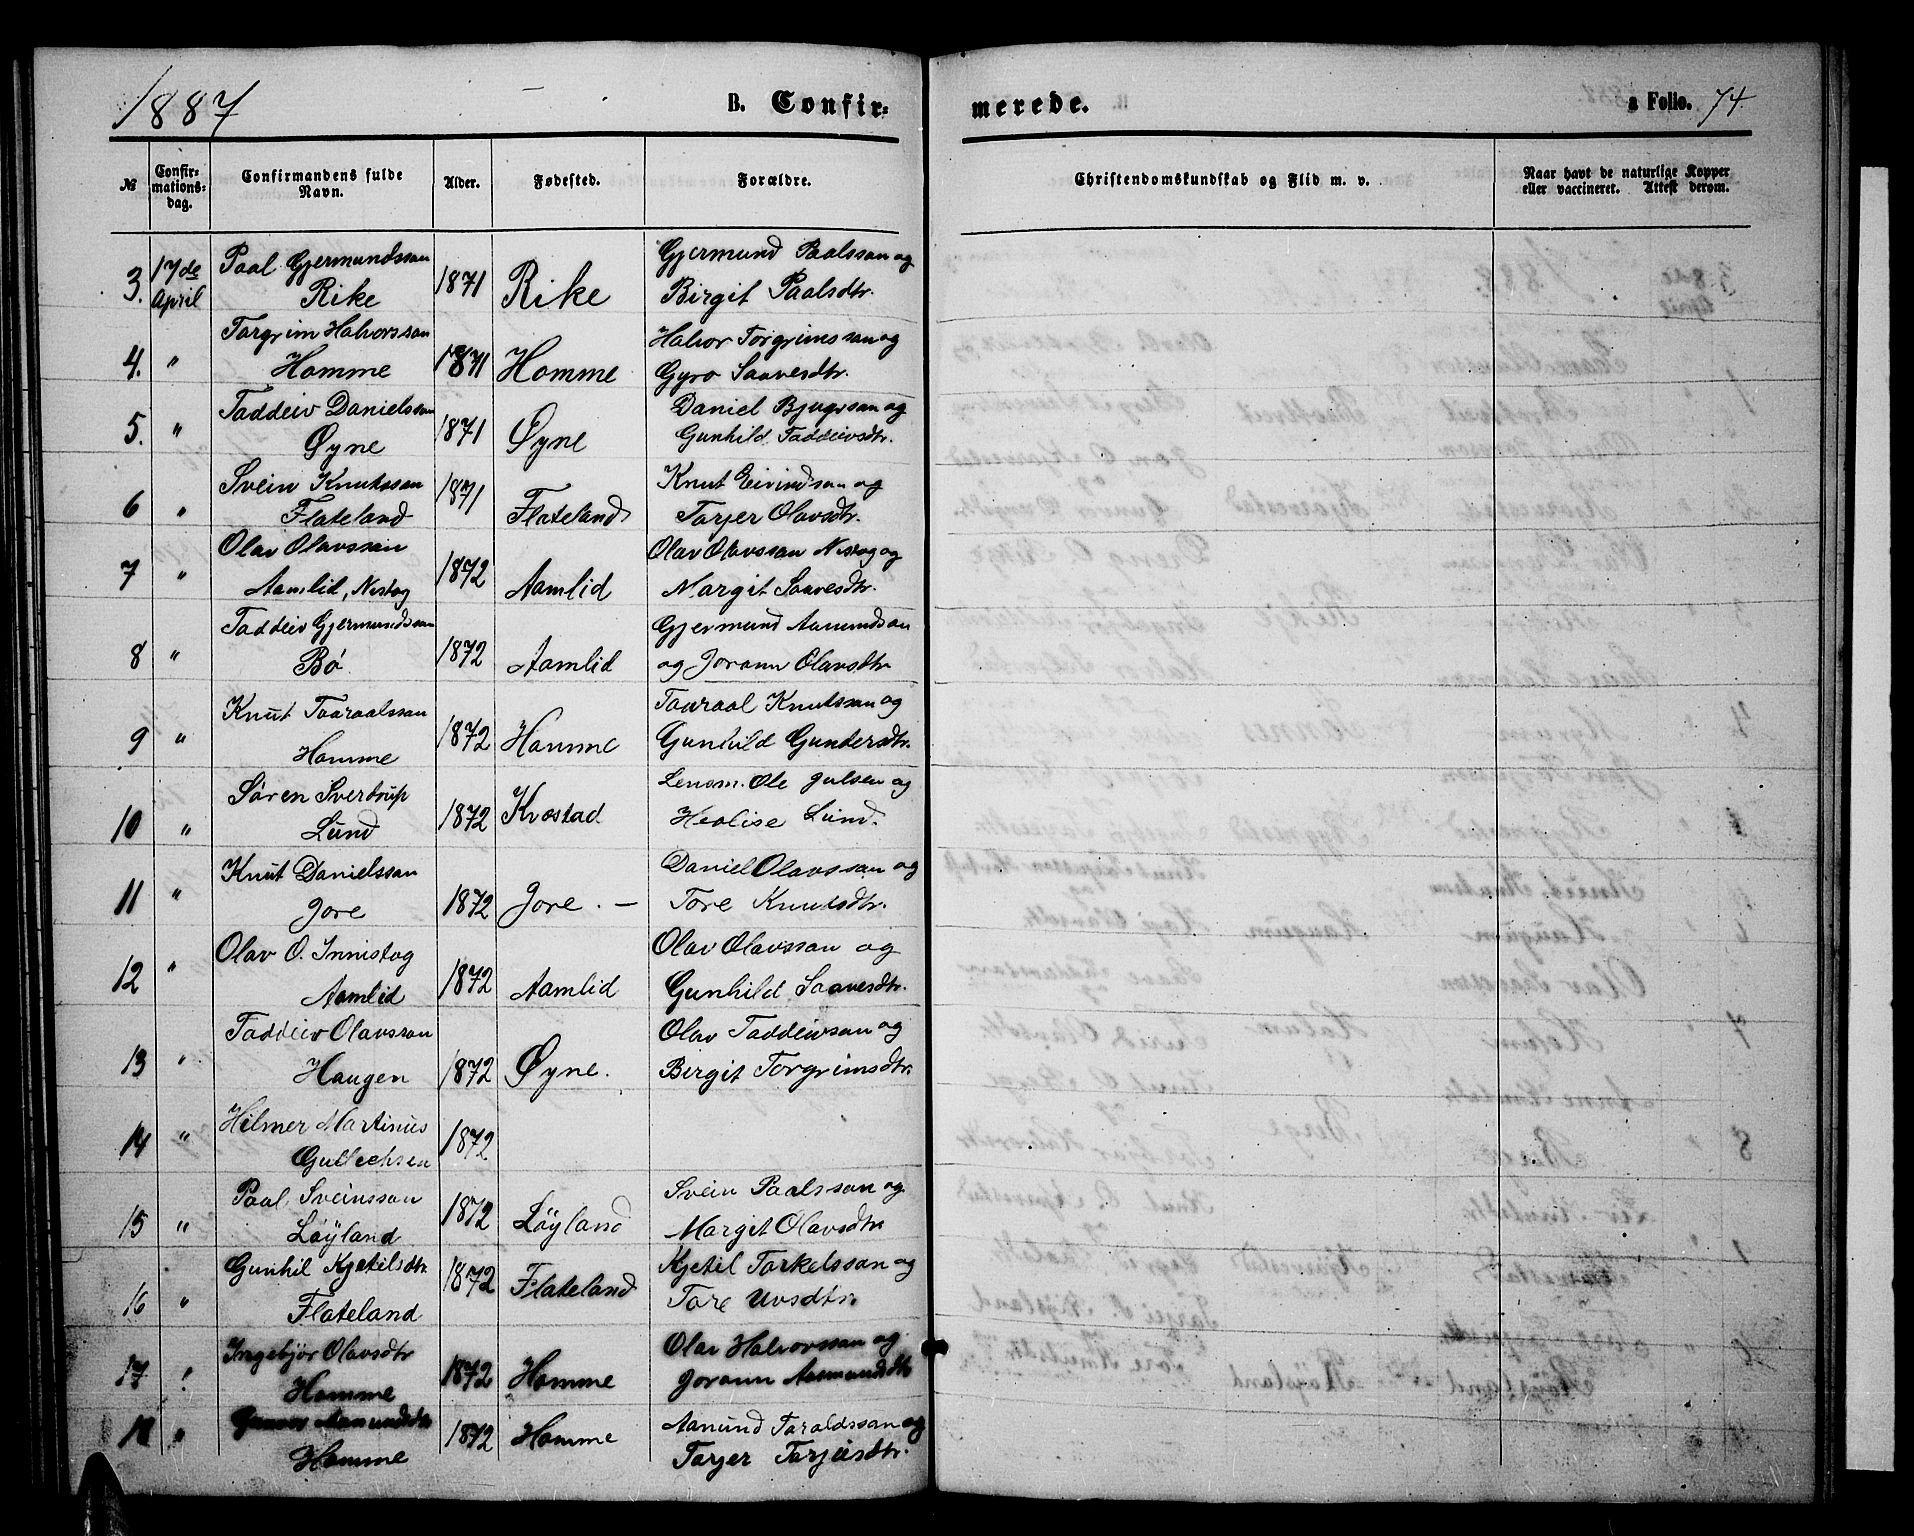 1887
B. Confir-
merede.
a Folio. 74.
№
Confir-
mations-
dag.
Confirmandens fulde
Navn.
Alder.
Fødested.
Forældre.
Christendomskundskab og Flid m. v.
Naar havt de naturlige Kopper
eller vaccineret. Attest derom.
3. 17de April Paal Gjermundssan
Rike 1871 Rike Gjermund Paalssan og
Birgit Paalsdtr.
4. " Torgrim Halvorssan
Homme 1871 Homme Halvor Torgrimssan og
Gyro Saavesdtr.
5. " Taddeiv Danielssan
Øyne 1871 Øyne Daniel Bjugssan og
Gunhild Taddeivsdtr.
6 " Svein Knutssan
Flateland 1871 Flateland Knut Eivindsan og
Torjer Olavsdtr.
7 " Olav Olavssan
Aamlid, Nistog 1872 Aamlid Olav Olavssan Nistog og
Margit Saavesdtr.
8 " Taddeiv Gjermundssan
Bø 1872 Aamlid Gjermund Aamundsan
og Jorann Olavsdtr
9 " Knut Taaraalssan
Homme 1872 Homme Taaraal Knutssan og
Gunhild Guntersdtr.
10 " Søren Sverdrup
Lund 1872 Kvestad Lensm. Ole Julsen og
Helise Lund.
11 " Knut Danielssan
Jore 1872 Jore. — Daniel Olavssan og
Tore Knutsdtr.
12 " Olav O. Innistog
Aamlid 1872 Aamlid Olav Olavssan og
Gunhild Saavesdtr.
13 " Taddeiv Olavssan
Haugen 1872 Øyne. Olav Taddeivsan og
Birgit Torgrimsdtr.
14 " Hilmer Martinus
Gullichsen 1872
15 " Paal Sveinssan
Løyland 1872 Løyland Svein Paalssan og
Margit Olavsdtr
16 " Gunhil Kjetilsdtr.
Flateland 1872 Flateland Kjetil Torkelssan og
Tore Uvsdtr.
17 " Ingebjør Olavsdtr
Homme 1872 Homme Olav Halvorssan og
Jorann Aamundsdtr
18 " Gunvor Aamundsdtr
Homme 1872 Homme Aamund Taraldssan og
Torjer Torjusdtr.